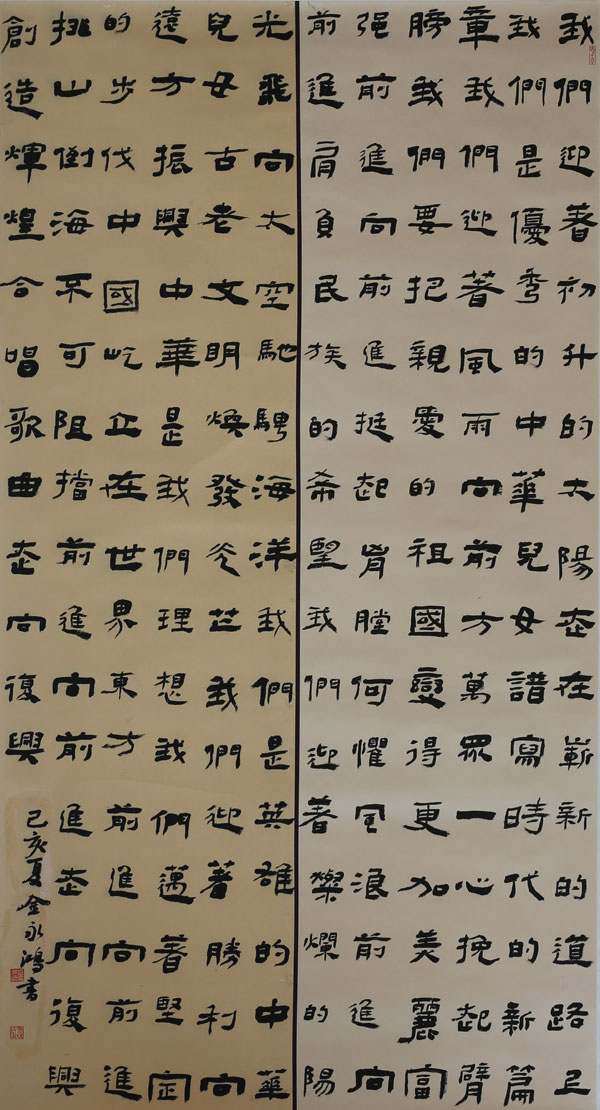 我們迎着初升的太陽走在嶄新的道路上
我們是優秀的中華兒女譜寫時代的新篇
章我們迎著風雨向前方萬眾一心挽起臂
膀我們要把親愛的祖國變得更加美麗富
强前進向前進挺起胷膛何懼風浪前進向
前進肩負民族的希望我們迎著燦爛的陽
光飛向太空馳騁海洋我們是英雄的中華
兒女古老文明煥發光芒我們迎著勝利向
遠方振興中華是我們理想我們邁著堅定
的步伐中國屹立在世界東方前進向前進
挑山倒海不可阻擋前進向前進走向復興
創造輝煌合唱歌曲走向復興
己亥夏金永鴻書